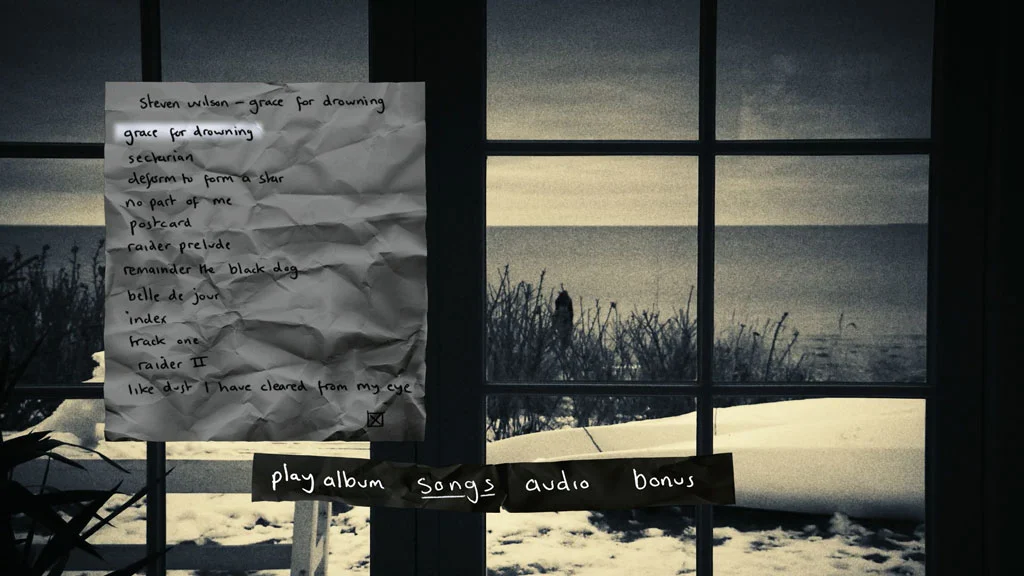 steven wilson - grace for drowning
grace for drowning
sectarian
deform to form a star
no part of me
postcard
raider prelude
remainder the black dog
belle de jour
index
track one
raider II
like dust I have cleared from my eye
play album songs audio bonus